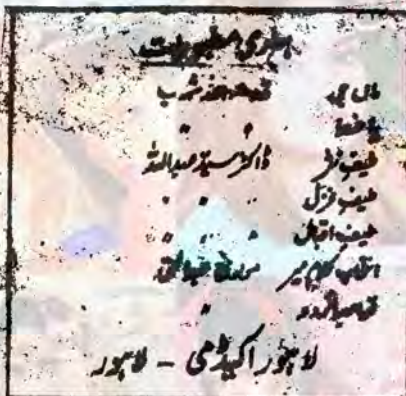 ہماری مطبوعات
ماں جی قدرت اللہ شہاب
" "
طیف نثر ڈاکٹر سید عبداللہ
طیف غزل " "
طیف اقبال " "
انتخاب کلام میر مولوی عبدالحق
قواعد اردو "
لاہور اکیڈمی - لاہور